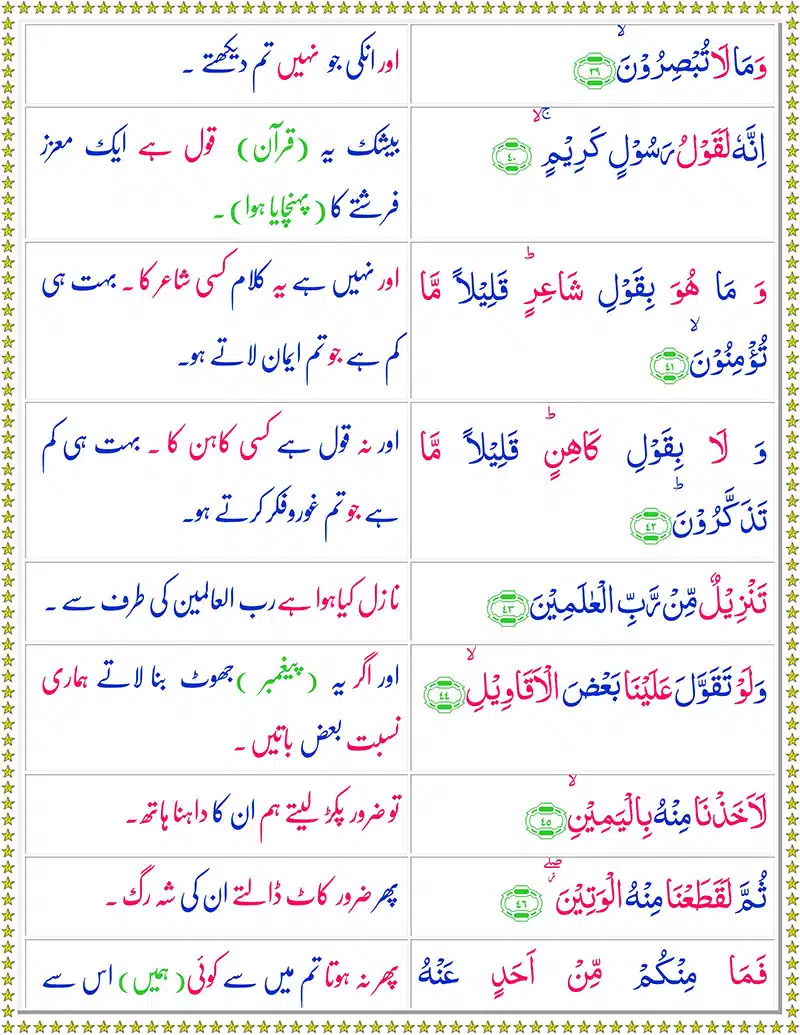 وَمَا لَا تُبْصِرُوْنَۙ ۳۹
اور انکی جو نہیں تم دیکھتے ۔
اِنَّهٗ لَقَوْلُ رَسُوْلٍ كَرِیْمٍۚۙ ۴۰
بیشک یہ (قرآن) قول ہے ایک معزز
فرشتے کا (پہنچایا ہوا)۔
وَ مَا هُوَ بِقَوْلِ شَاعِرٍؕ قَلِیْلاً مَّا
تُؤْمِنُوْنَۙ ۴۱
اور نہیں ہے یہ کلام کسی شاعر کا ۔ بہت ہی
کم ہے جو تم ایمان لاتے ہو۔
وَ لَا بِقَوْلِ كَاهِنٍؕ قَلِیْلاً مَّا
تَذَكَّرُوْنَؕ ۴۲
اور نہ قول ہے کسی کاہن کا ۔ بہت ہی کم
ہے جو تم غور و فکر کرتے ہو۔
تَنْزِیْلٌ مِّنْ رَّبِّ الْعٰلَمِیْنَ ۴۳
نازل کیا ہوا ہے رب العالمین کی طرف سے ۔
وَلَوْ تَقَوَّلَ عَلَیْنَا بَعْضَ الْاَقَاوِیْلِۙ ۴۴
اور اگر یہ (پیغمبر) جھوٹ بنا لاتے ہماری
نسبت بعض باتیں ۔
لَاَخَذْنَا مِنْهُ بِالْیَمِیْنِۙ ۴۵
تو ضرور پکڑ لیتے ہم ان کا داہنا ہاتھ۔
ثُمَّ لَقَطَعْنَا مِنْهُ الْوَتِیْنَۖ ۴۶
پھر ضرور کاٹ ڈالتے ان کی شہ رگ ۔
فَمَا مِنْكُمْ مِّنْ اَحَدٍ عَنْهُ
پھر نہ ہوتا تم میں سے کوئی (ہمیں) اس سے